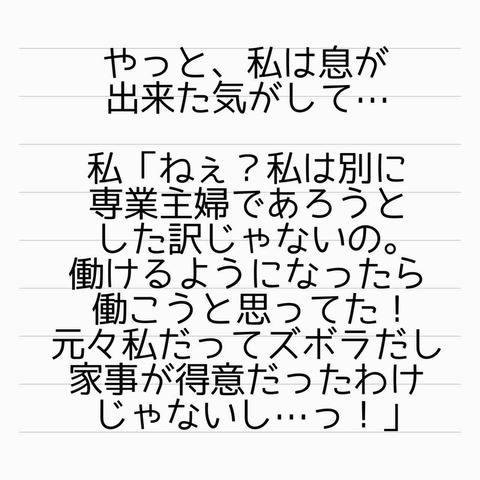 やっと、私は息が
出来た気がして…
私「ねぇ？私は別に
専業主婦であろうと
した訳じゃないの。
働けるようになったら
働こうと思ってた！
元々私だってズボラだし
家事が得意だったわけ
じゃないし…っ！」